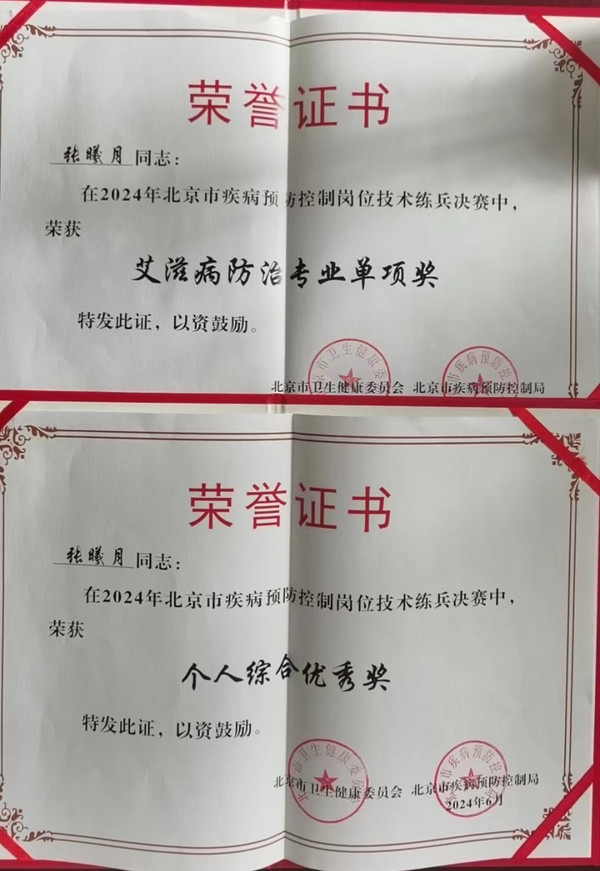 荣誉证书
张曦月同志：
在2024年北京市疾病预防控制岗位技术练兵决赛中，
荣获
艾滋病防治专业单项奖
特发此证，以资鼓励。
北京市卫生健康委员会 北京市疾病预防控制局
荣誉证书
张曦月同志：
在2024年北京市疾病预防控制岗位技术练兵决赛中，
荣获
个人综合优秀奖
特发此证，以资鼓励。
北京市卫生健康委员会 北京市疾病预防控制局
2024年6月